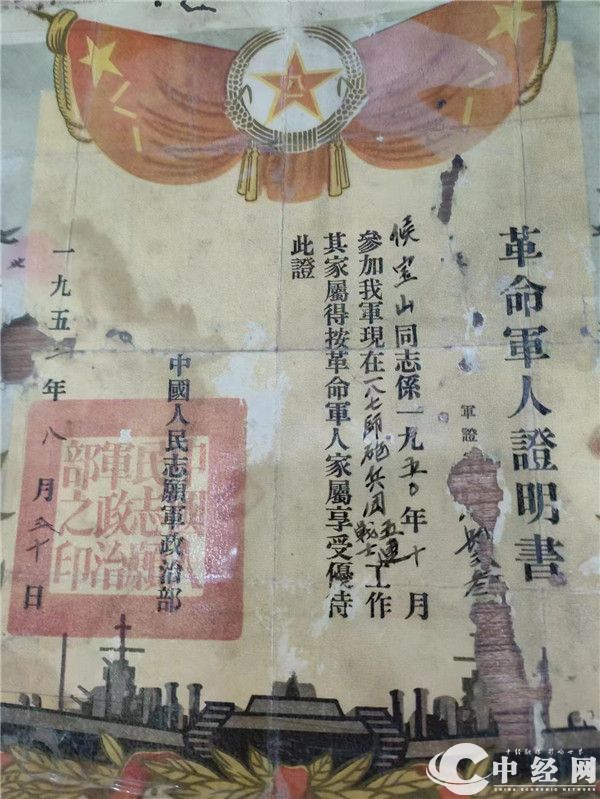 革命軍人證明書
軍證
候宝山同志係一九五〇年十月
參加我軍現在一八七師砲兵团五連战士工作
其家屬得按革命軍人家屬享受優待
此證
中國人民志願軍政治部
一九五 年八月五十日
中國人
民志願
軍政治
部之印
八一
中经网
CHINA ECONOMIC NETWORK